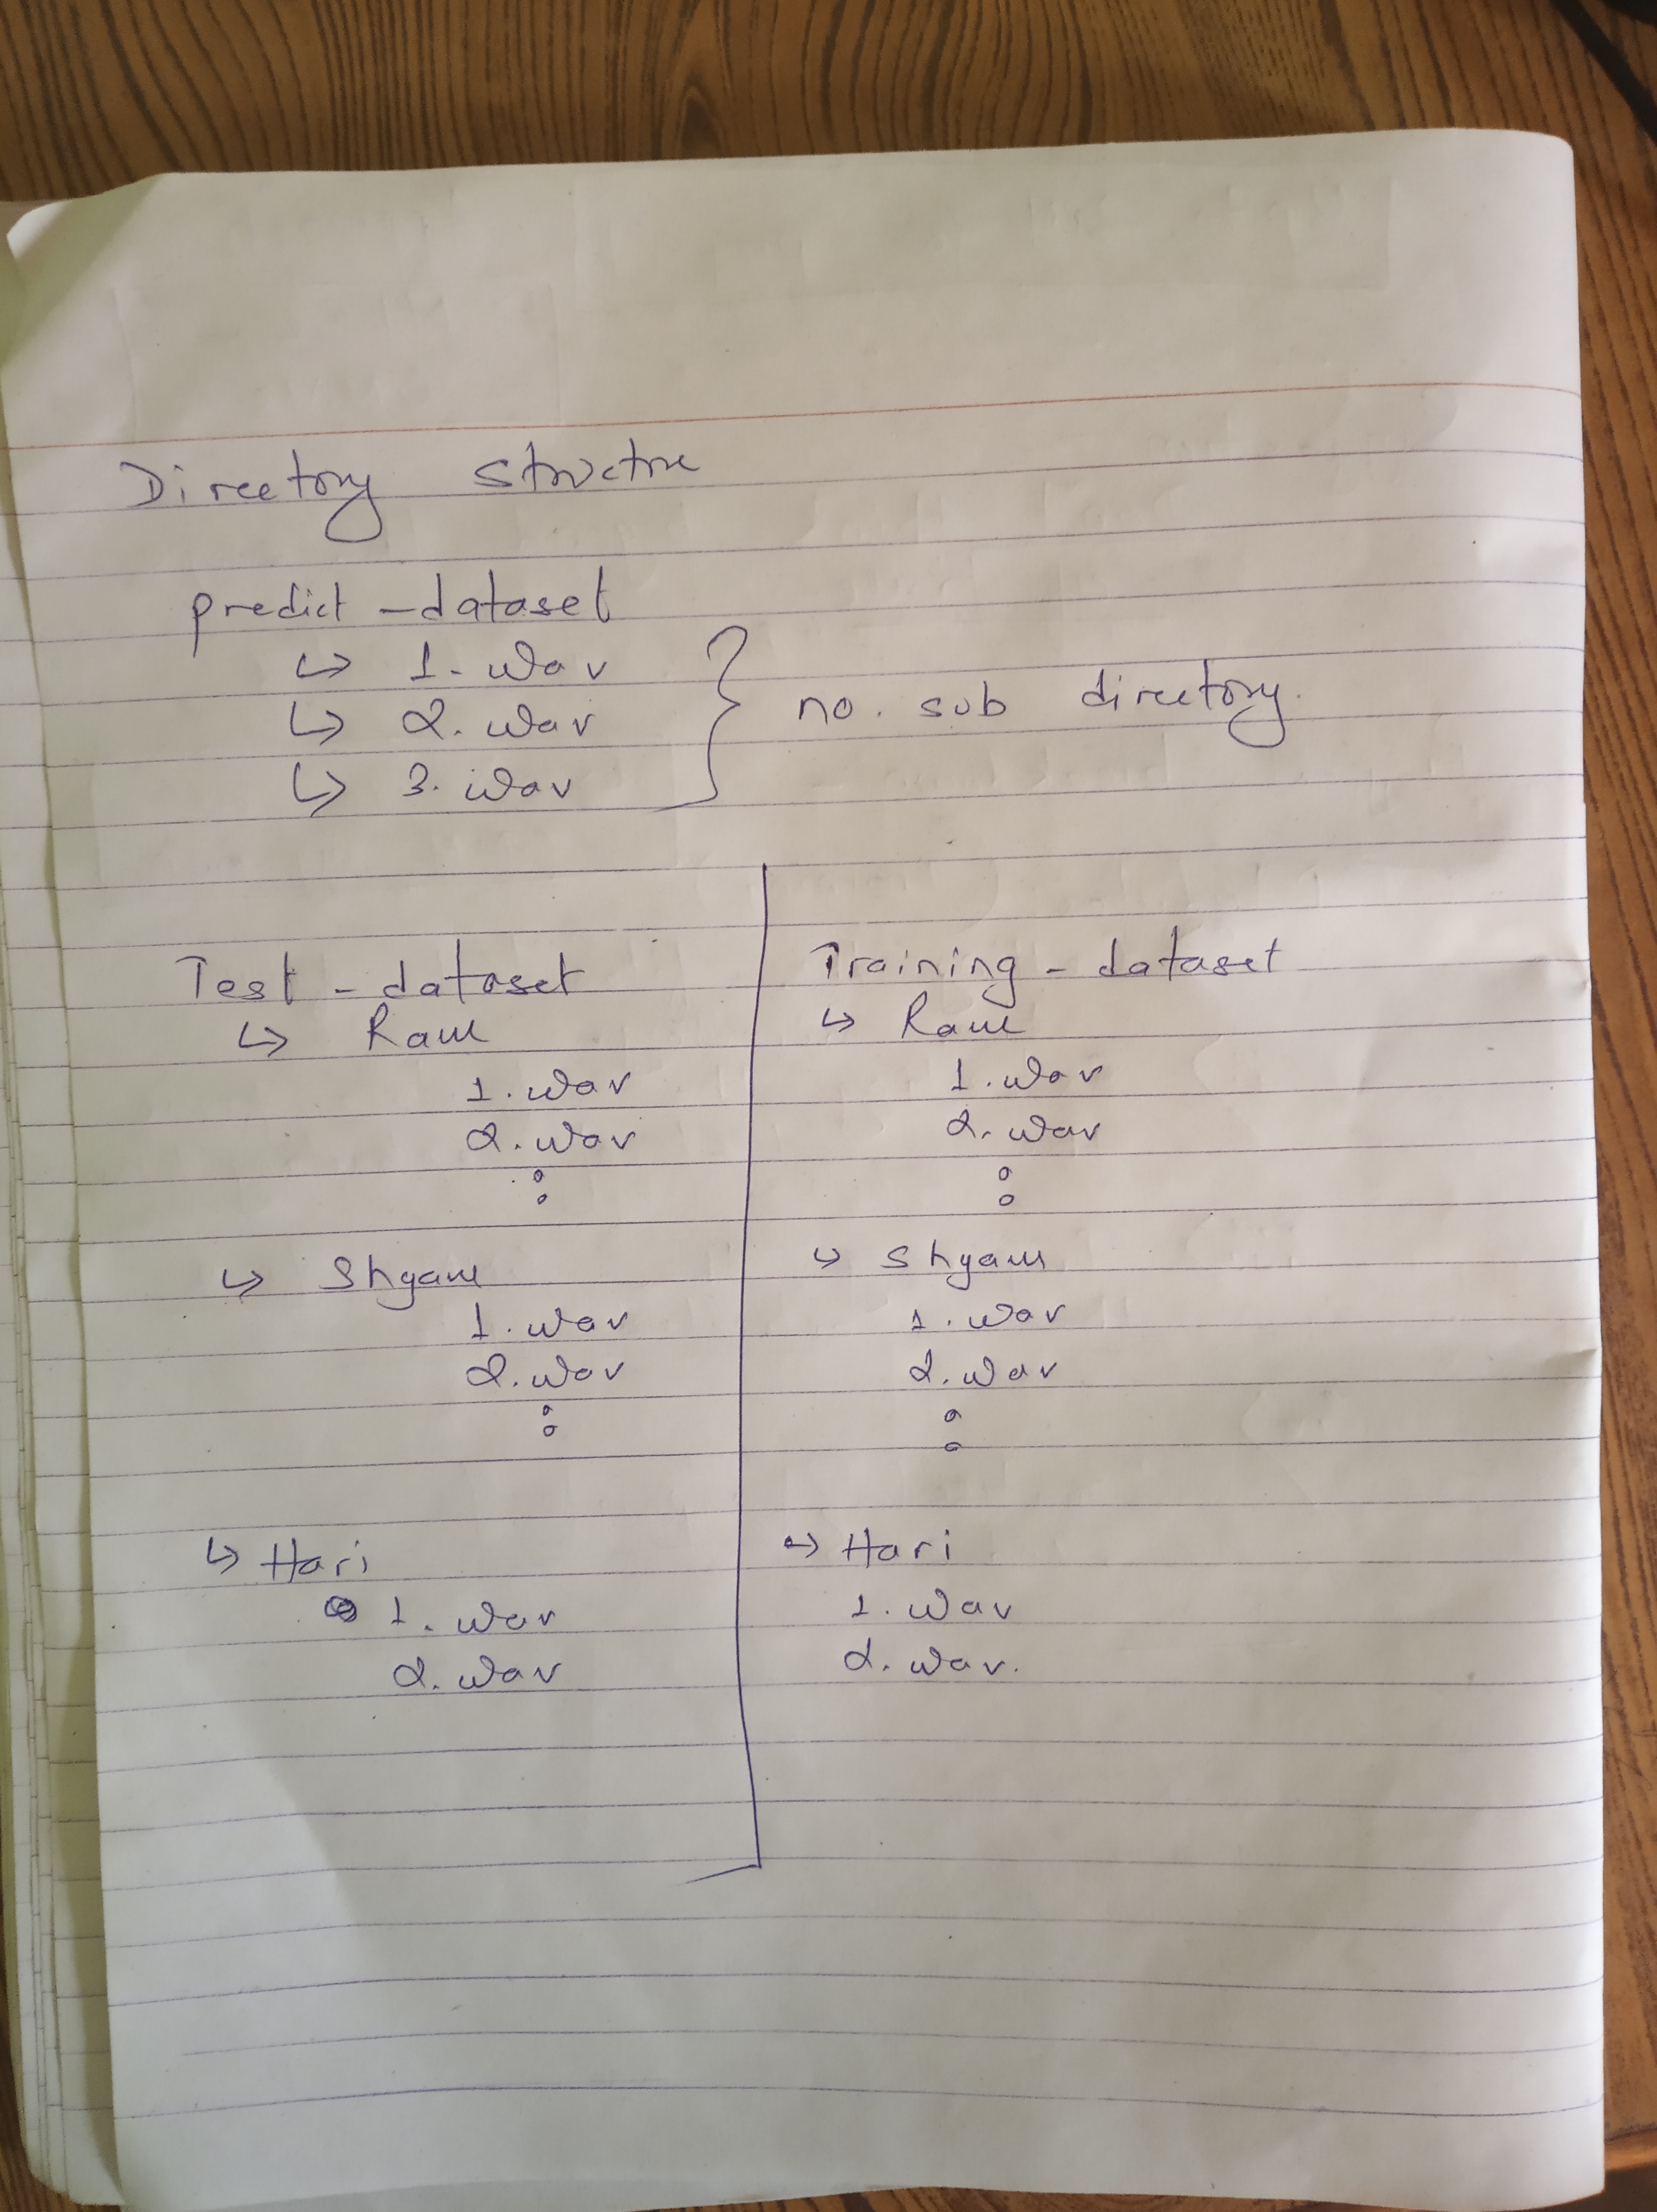 Directory structure
predict - dataset
↳ 1. wav
↳ 2. wav
↳ 3. wav
no. sub directory.
Test - dataset
↳ Ram
1. wav
2. wav
:
↳ Shyam
1. wav
2. wav
:
↳ Hari
1. wav
2. wav
Training - dataset
↳ Ram
1. wav
2. wav
:
↳ Shyam
1. wav
2. wav
:
↳ Hari
1. wav
2. wav.